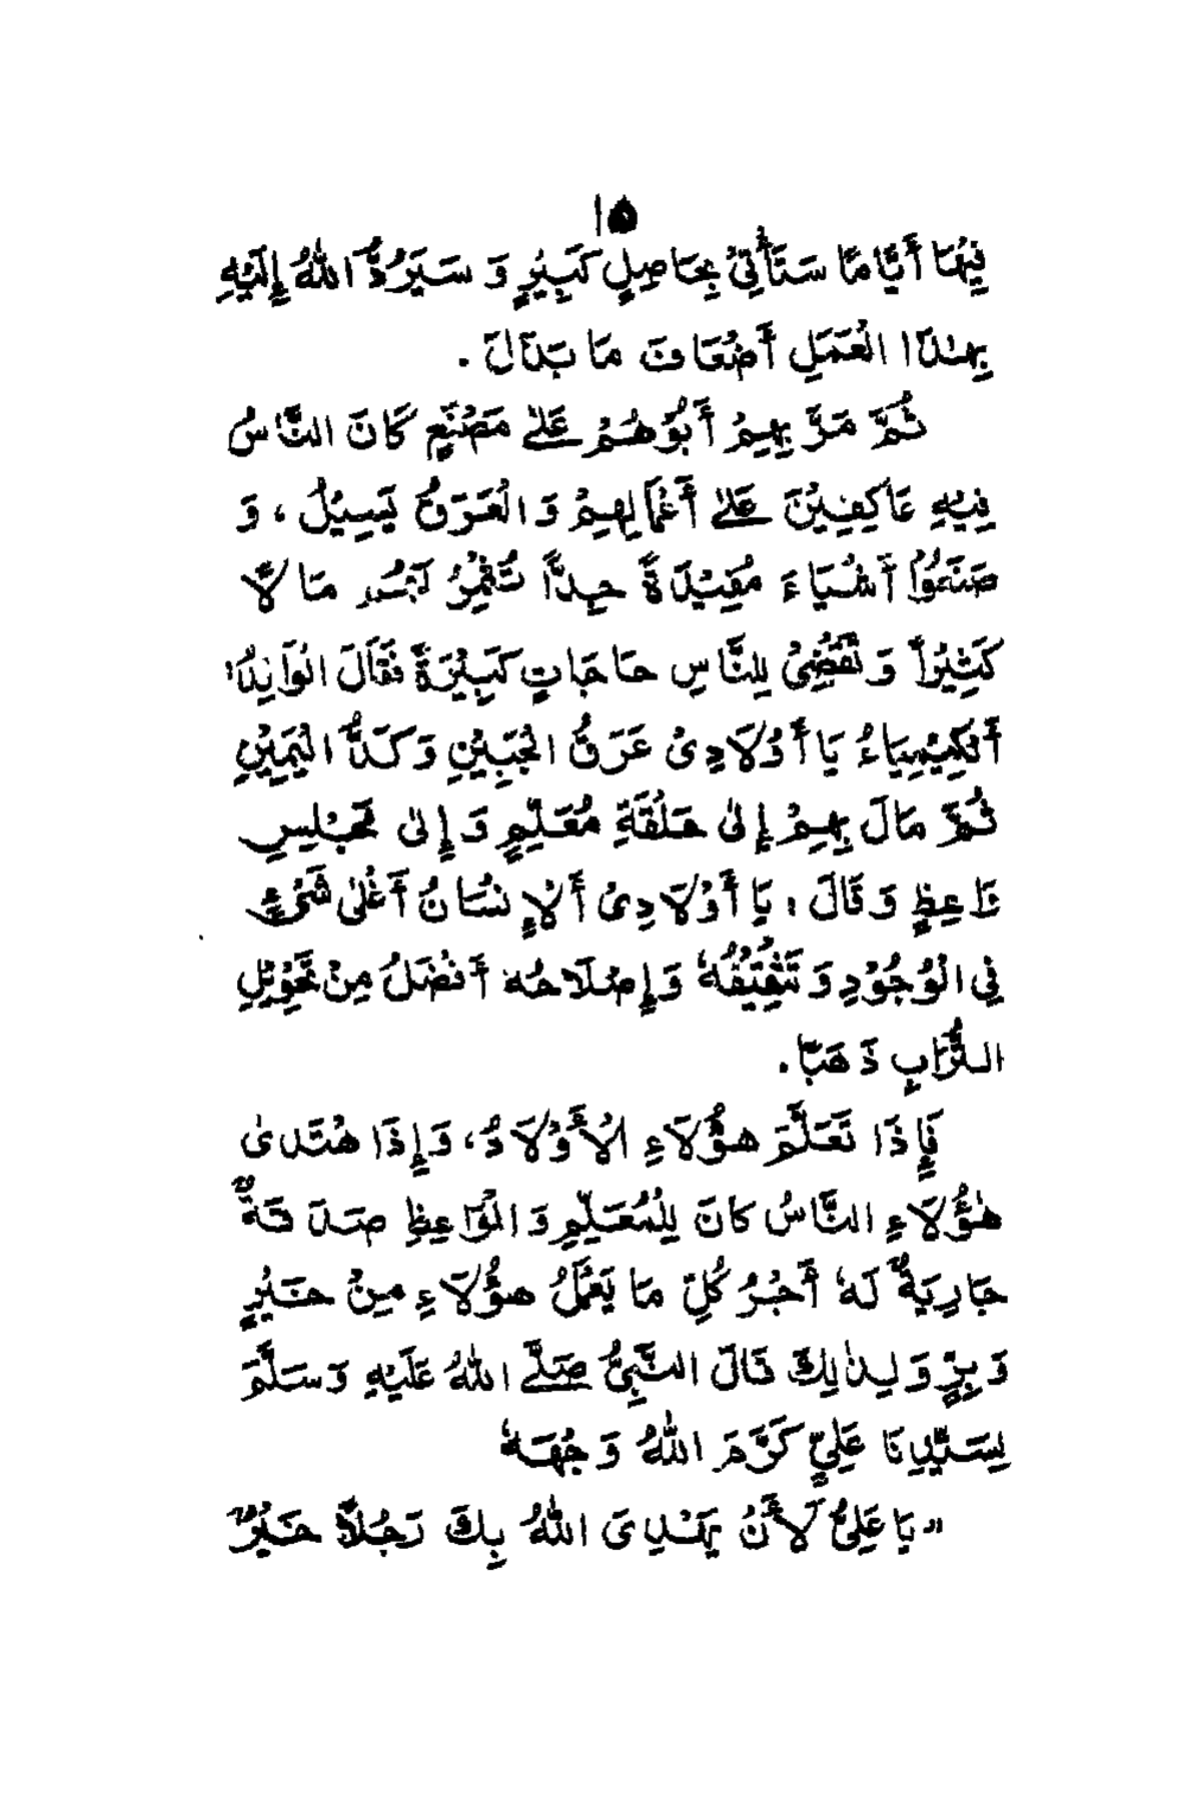 ١٥
فِيْهَا أَيَّامًا سَتَأْتِيْ بِحَاصِلٍ كَبِيْرٍ وَ سَيَرُدُّ اللهُ إِلَيْهِ
بِهٰذَا الْعَمَلِ أَضْعَافَ مَا بَذَلَ .
ثُمَّ مَرَّ بِهِمْ أَبُوْهُمْ عَلٰى مَصْنَعٍ كَانَ النَّاسُ
فِيْهِ عَاكِفِيْنَ عَلٰى أَعْمَالِهِمْ وَ الْعَرَقُ يَسِيْلُ ، وَ
صَنَعُوْا أَشْيَاءَ مُفِيْدَةً جِدًّا تُثْمِرُ لَهُمْ مَالًا
كَثِيْرًا وَ تَقْضِيْ لِلنَّاسِ حَاجَاتٍ كَبِيْرَةً فَقَالَ الْوَالِدُ:
أَلْكِيْمِيَاءُ يَا أَوْلَادِيْ عَرَقُ الْجَبِيْنِ وَ كَدُّ الْيَمِيْنِ
ثُمَّ مَالَ بِهِمْ إِلٰى حَلْقَةِ مُعَلِّمٍ وَ إِلٰى مَجْلِسِ
وَاعِظٍ وَ قَالَ : يَا أَوْلَادِيْ أَلْإِنْسَانُ أَغْلٰى شَيْءٍ
فِي الْوُجُوْدِ وَ تَثْقِيْفُهٗ وَ إِصْلَاحُهٗ أَفْضَلُ مِنْ تَحْوِيْلِ
التُّرَابِ ذَهَبًا .
فَإِذَا تَعَلَّمَ هٰؤُلَاءِ الْأَوْلَادُ ، وَ إِذَا هْتَدٰى
هٰؤُلَاءِ النَّاسُ كَانَ لِلْمُعَلِّمِ وَ الْوَاعِظِ صَدَقَةٌ
جَارِيَةٌ لَهٗ أَجْرُ كُلِّ مَا يَعْمَلُ هٰؤُلَاءِ مِنْ خَيْرٍ
وَ بِرٍّ وَ لِذٰلِكَ قَالَ النَّبِيُّ صَلَّى اللهُ عَلَيْهِ وَ سَلَّمَ
لِسَيِّدِنَا عَلِيٍّ كَرَّمَ اللهُ وَجْهَهٗ
" يَا عَلِيُّ لَأَنْ يَهْدِيَ اللهُ بِكَ رَجُلًا خَيْرٌ